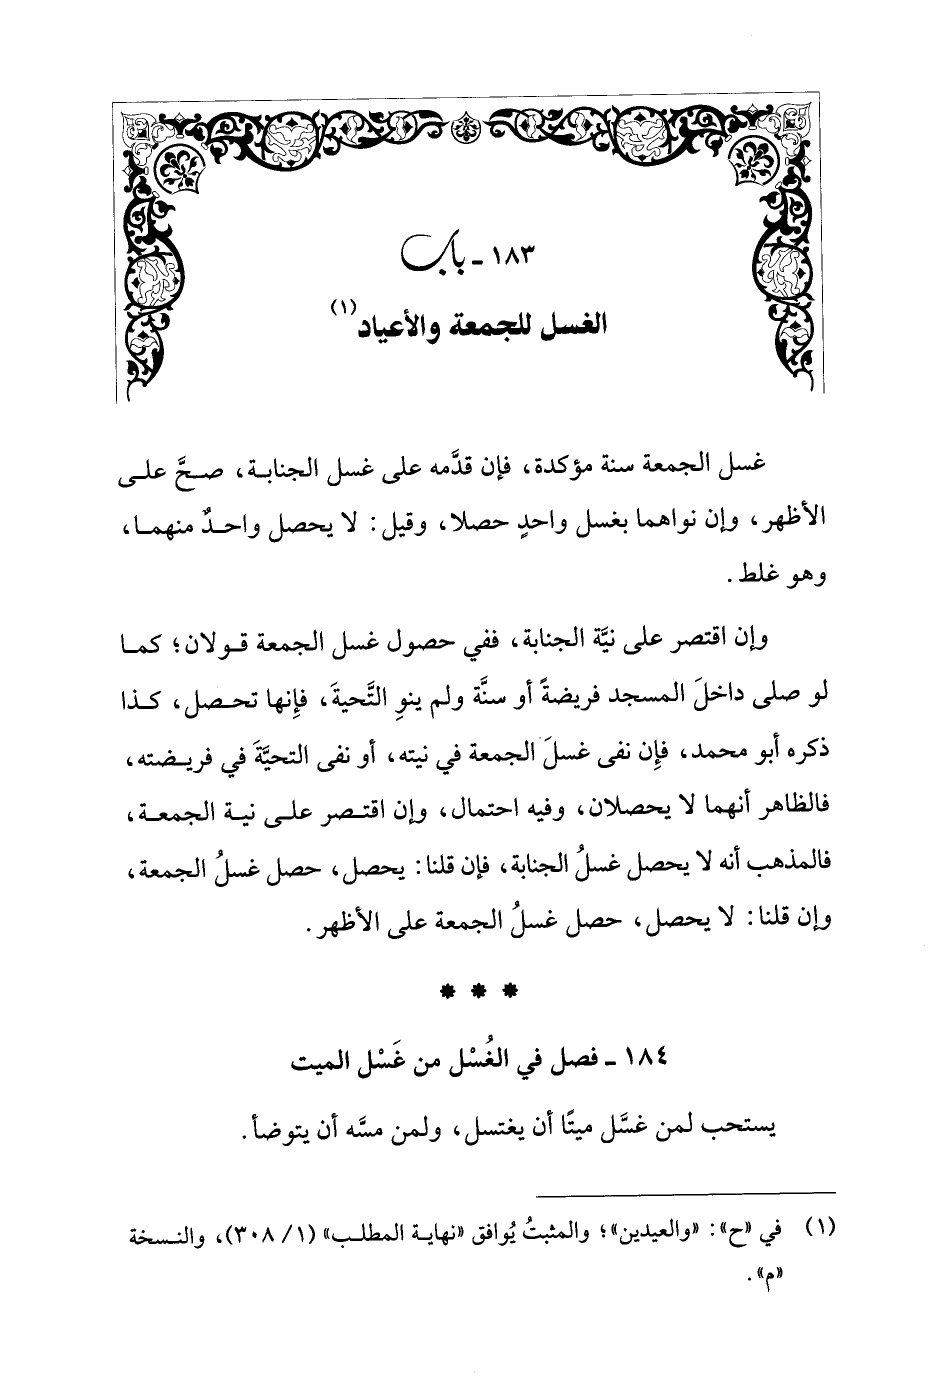 ١٨٣ - باب
الغسل للجمعة والأعياد(١)
غسل الجمعة سنة مؤكدة، فإن قدَّمه على غسل الجنابة، صحَّ على
الأظهر، وإن نواهما بغسل واحدٍ حصلا، وقيل: لا يحصل واحدٌ منهما،
وهو غلط.
وإن اقتصر على نيَّة الجنابة، ففي حصول غسل الجمعة قولان؛ كما
لو صلى داخلَ المسجد فريضةً أو سنَّة ولم ينوِ التَّحيةَ، فإنها تحصل، كذا
ذكره أبو محمد، فإن نفى غسلَ الجمعة في نيته، أو نفى التحيَّةَ في فريضته،
فالظاهر أنهما لا يحصلان، وفيه احتمال، وإن اقتصر على نية الجمعة،
فالمذهب أنه لا يحصل غسلُ الجنابة، فإن قلنا: يحصل، حصل غسلُ الجمعة،
وإن قلنا: لا يحصل، حصل غسلُ الجمعة على الأظهر.
* * *
١٨٤ - فصل في الغُسْل من غَسْل الميت
يستحب لمن غسَّل ميتًا أن يغتسل، ولمن مسَّه أن يتوضأ.
(١) في «ح»: «والعيدين»؛ والمثبتُ يُوافق «نهاية المطلب» (١/ ٣٠٨)، والنسخة
«م».